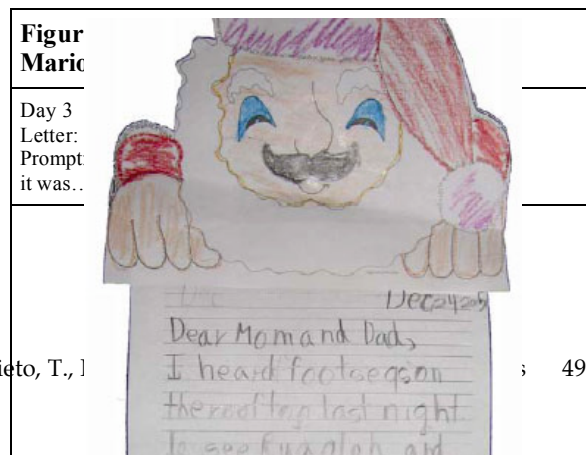 Figur
Mario
Day 3
Letter:
Prompt
it was…
Dec
Dec 24 200
Dear Mom and Dad,
I heard footsegson
the rooftop last night
ieto, T.,
s 49